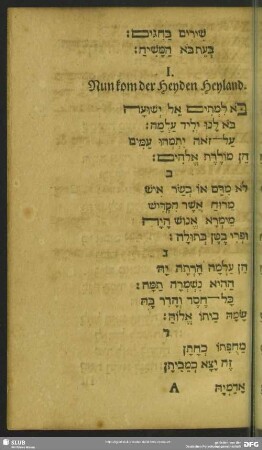 שירים בחגים:
בעת בא המשיח:
I.
Nun kom der Heyden Heyland.
בא לנו יליד עלמה:
על־זאת יתמהו עמים
הן מולדת אלהים:
ב
לא מדם או בשר איש
מרוח אשר הקדיש
מימרא אנוש היה
ופרי בטן בתולה:
ג
הן עלמה הרתה יה
ההיא נשמרה תמה:
כל־חסד והדר בה
שמה ביתו אלוה:
ד
מחפתו כחתן
זה יצא
A
SLUB
DFG